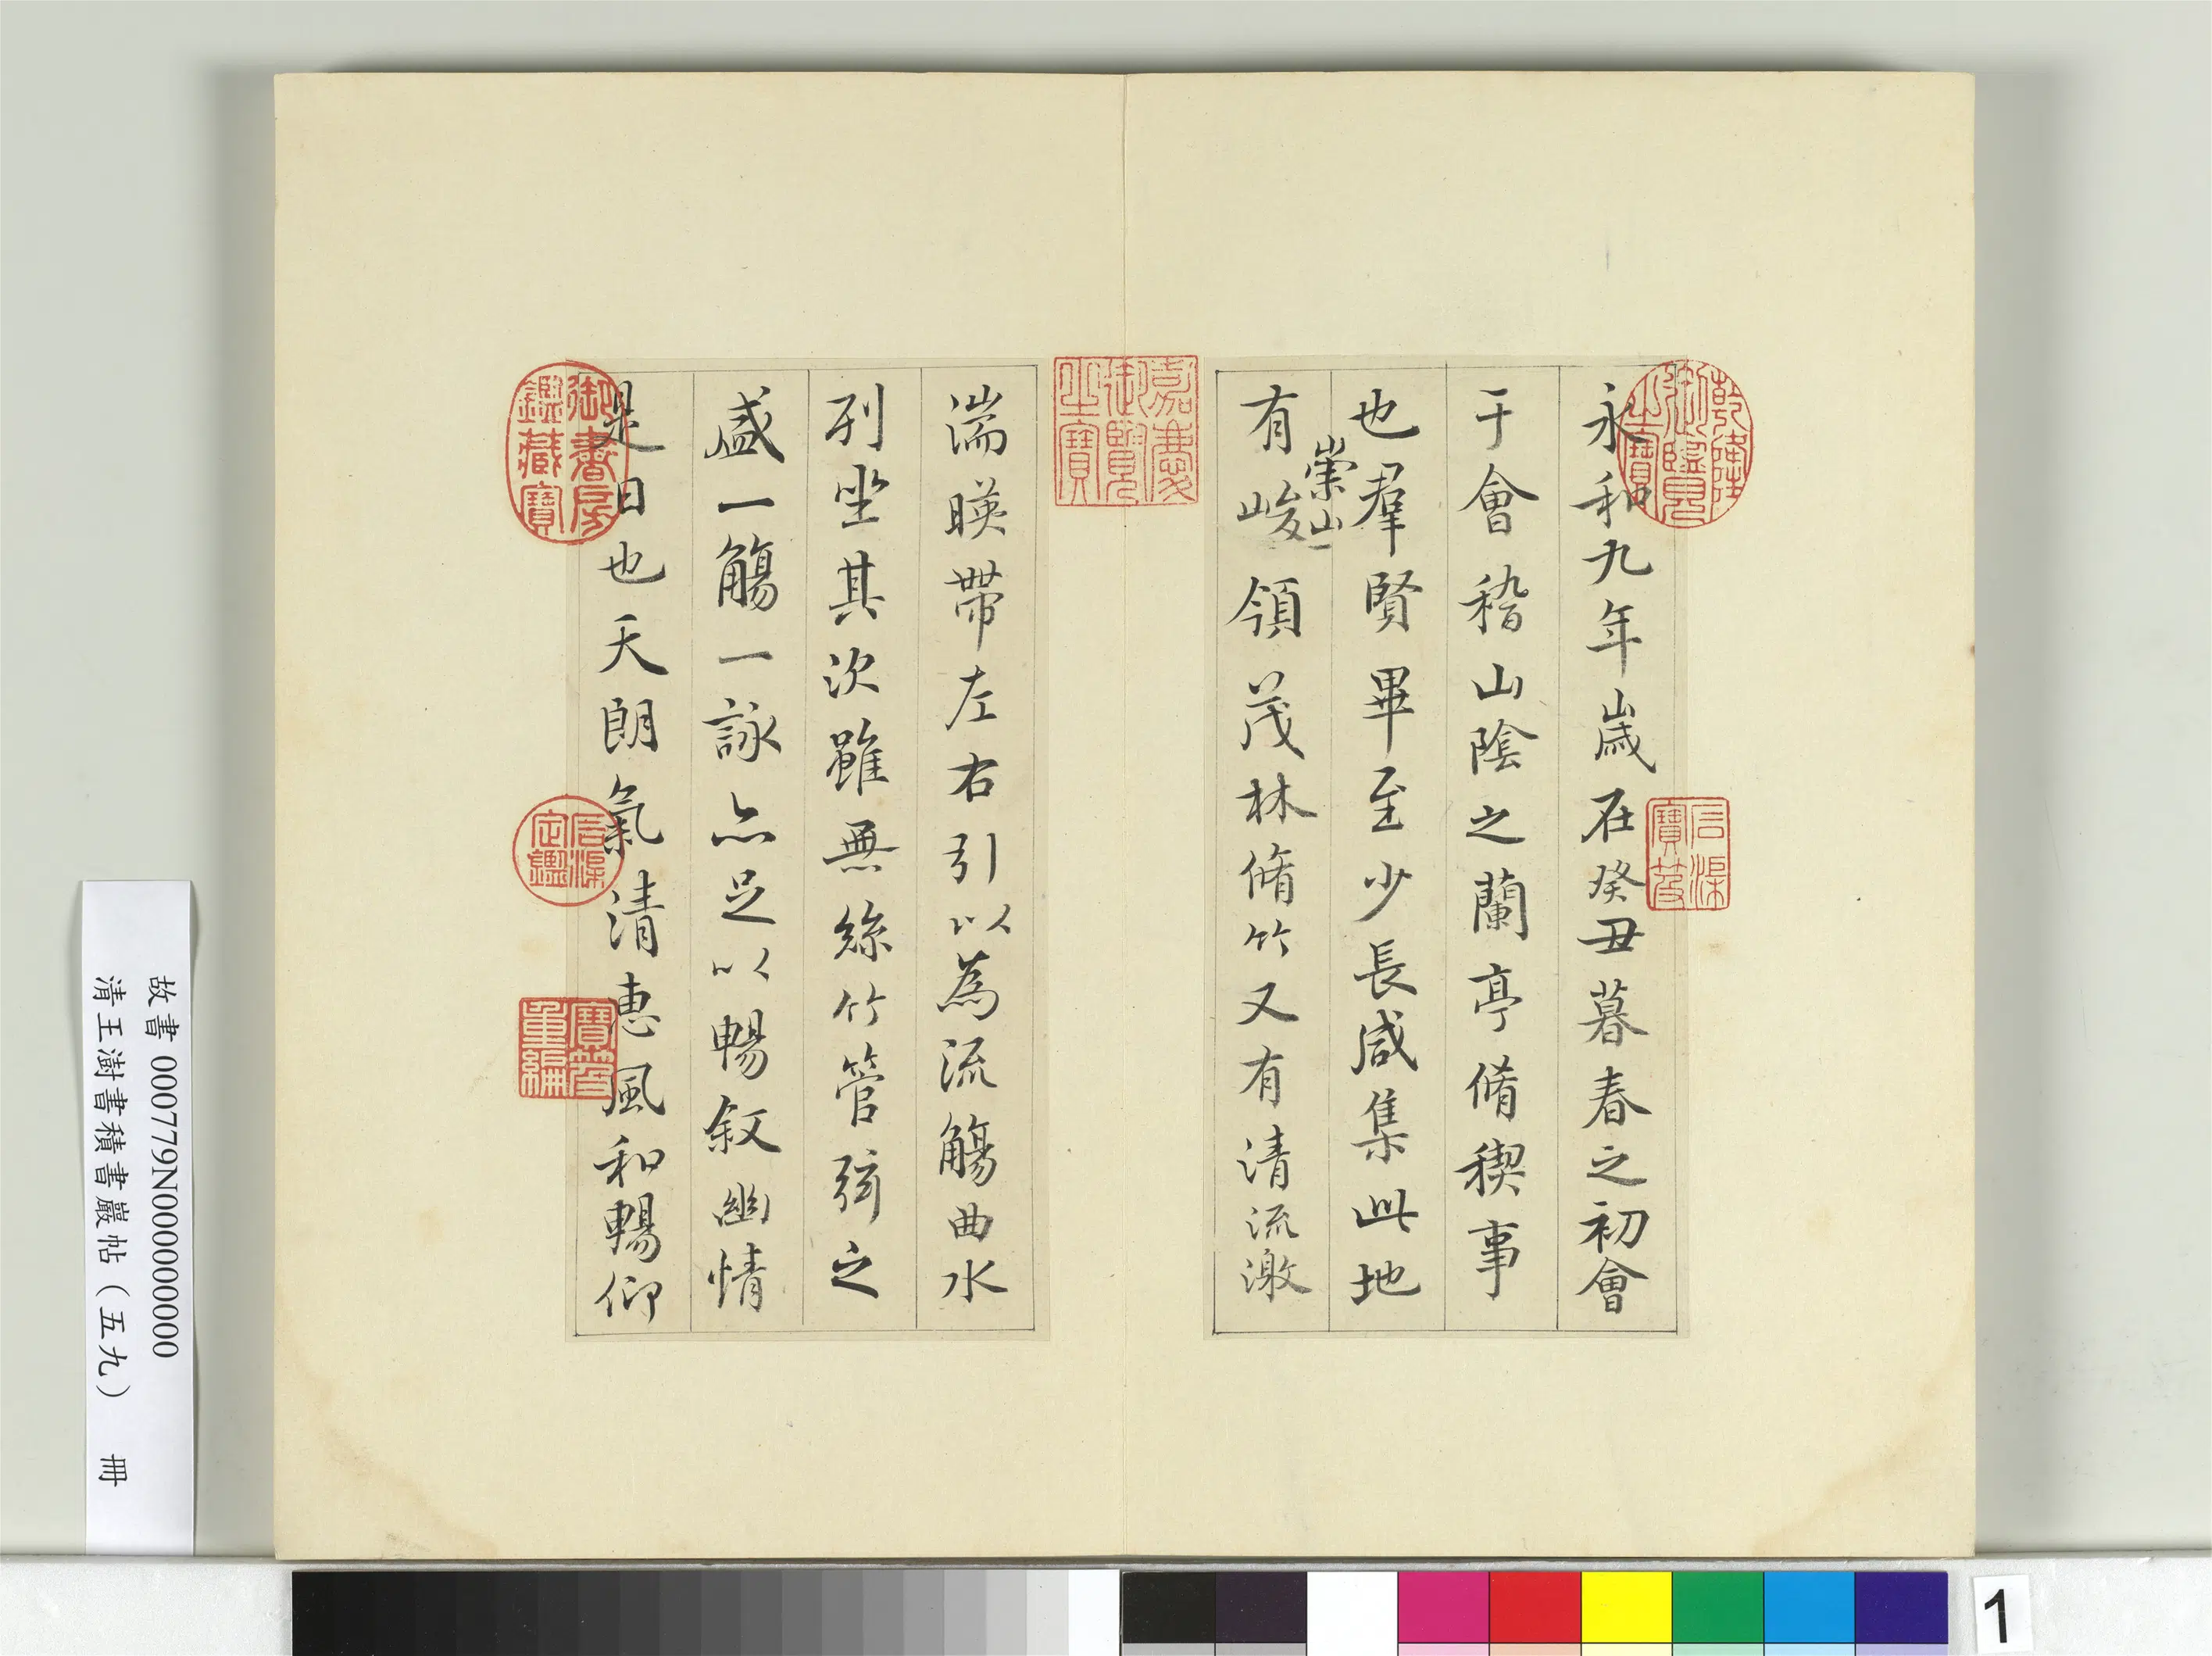 永和九年歲在癸丑暮春之初會
于會稽山陰之蘭亭脩稧事
也羣賢畢至少長咸集此地
有崇山峻領茂林脩竹又有清流激
湍暎帶左右引以為流觴曲水
列坐其次雖無絲竹管弦之
盛一觴一詠亦足以暢敘幽情
是日也天朗氣清惠風和暢仰
乾隆御覽之寶
石渠寶笈
嘉慶御覽之寶
御書房鑑藏寶
石渠定鑑
寶笈重編
故書 000779N000000000
清王澍書積書巖帖（五九） 冊
1